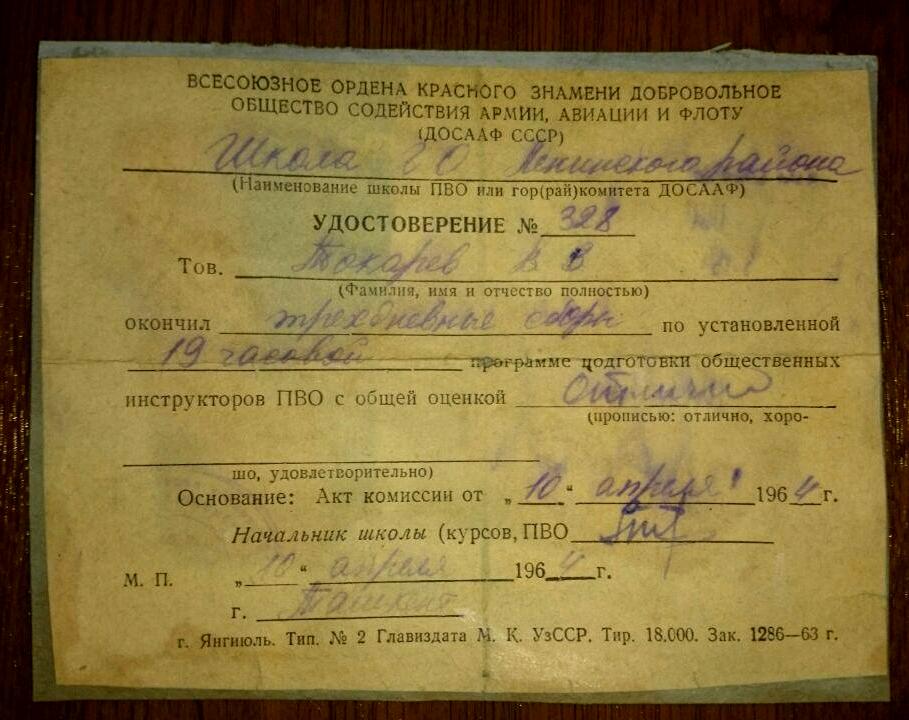 ВСЕСОЮЗНОЕ ОРДЕНА КРАСНОГО ЗНАМЕНИ ДОБРОВОЛЬНОЕ
ОБЩЕСТВО СОДЕЙСТВИЯ АРМИИ, АВИАЦИИ И ФЛОТУ
(ДОСААФ СССР)
Школа ГО Ленинского района
(Наименование школы ПВО или гор(рай)комитета ДОСААФ)
УДОСТОВЕРЕНИЕ № 328
Тов. Токарев В В
(Фамилия, имя и отчество полностью)
окончил трехдневные сборы по установленной
19 часовой программе подготовки общественных
инструкторов ПВО с общей оценкой отлично
(прописью: отлично, хоро-
шо, удовлетворительно)
Основание: Акт комиссии от „10“ апреля 1964 г.
Начальник школы (курсов, ПВО
М. П. „10“ апреля 1964 г.
г. Ташкент
г. Янгиюль. Тип. № 2 Главиздата М. К. УзССР. Тир. 18.000. Зак. 1286—63 г.